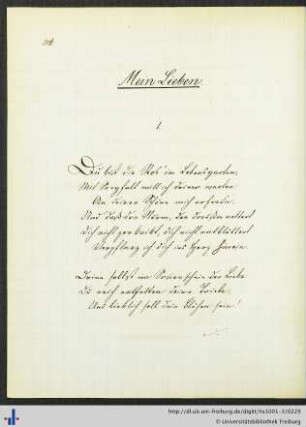 Mein Lieben.
1.
Du bist die Ros' im Lebensgarten,
Mit Sorgfalt will ich deiner warten
An deiner Schöne mich erfreun.
Und daß der Sturm, der draußen wettert
Dich nicht zerknickt, dich nicht entblättert
Verpflanz ich dich ins Herz hinein.
Drinn sollst im Sonnenschein der Liebe
Du reich entfalten deine Triebe,
Und lieblich soll dein Blühen sein!
http://dl.ub.uni-freiburg.de/diglit/hs1001-3/0229
© Universitätsbibliothek Freiburg